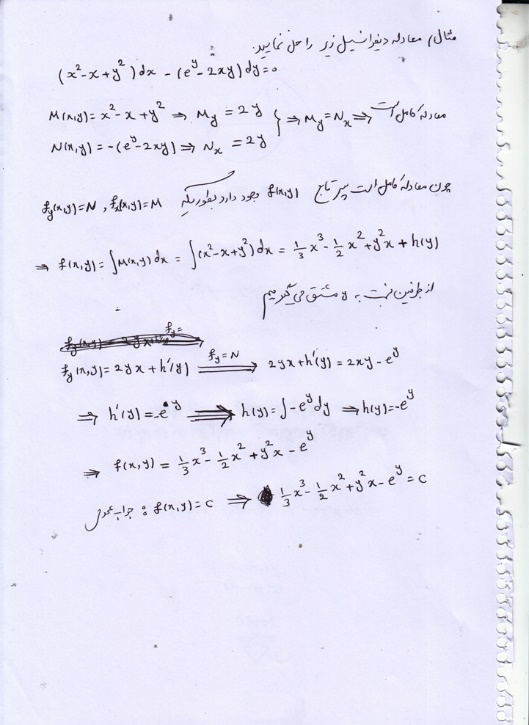 مثال) معادله دیفرانسیل زیر را حل نمایید.
(x²-x+y²)dx - (e^y-2xy)dy=0
M(x,y)=x²-x+y² ⇒ My=2y
N(x,y)=-(e^y-2xy) ⇒ Nx=2y } ⇒ My=Nx ⇒ معادله کامل است
چون معادله کامل است پس تابع f(x,y) وجود دارد بطوریکه fx(x,y)=M , fy(x,y)=N
⇒ f(x,y)=∫M(x,y)dx=∫(x²-x+y²)dx=1/3x³-1/2x²+y²x+h(y)
از طرفین نسبت به y مشتق می گیریم
fy(x,y)=2yx+h'(y) ⇒ fy=N 2yx+h'(y)=2xy-e^y
⇒ h'(y)=-e^y ⇒ h(y)=∫-e^y dy ⇒ h(y)=-e^y
⇒ f(x,y)=1/3x³-1/2x²+y²x-e^y
جواب عمومی : f(x,y)=c ⇒ 1/3x³-1/2x²+y²x-e^y=c